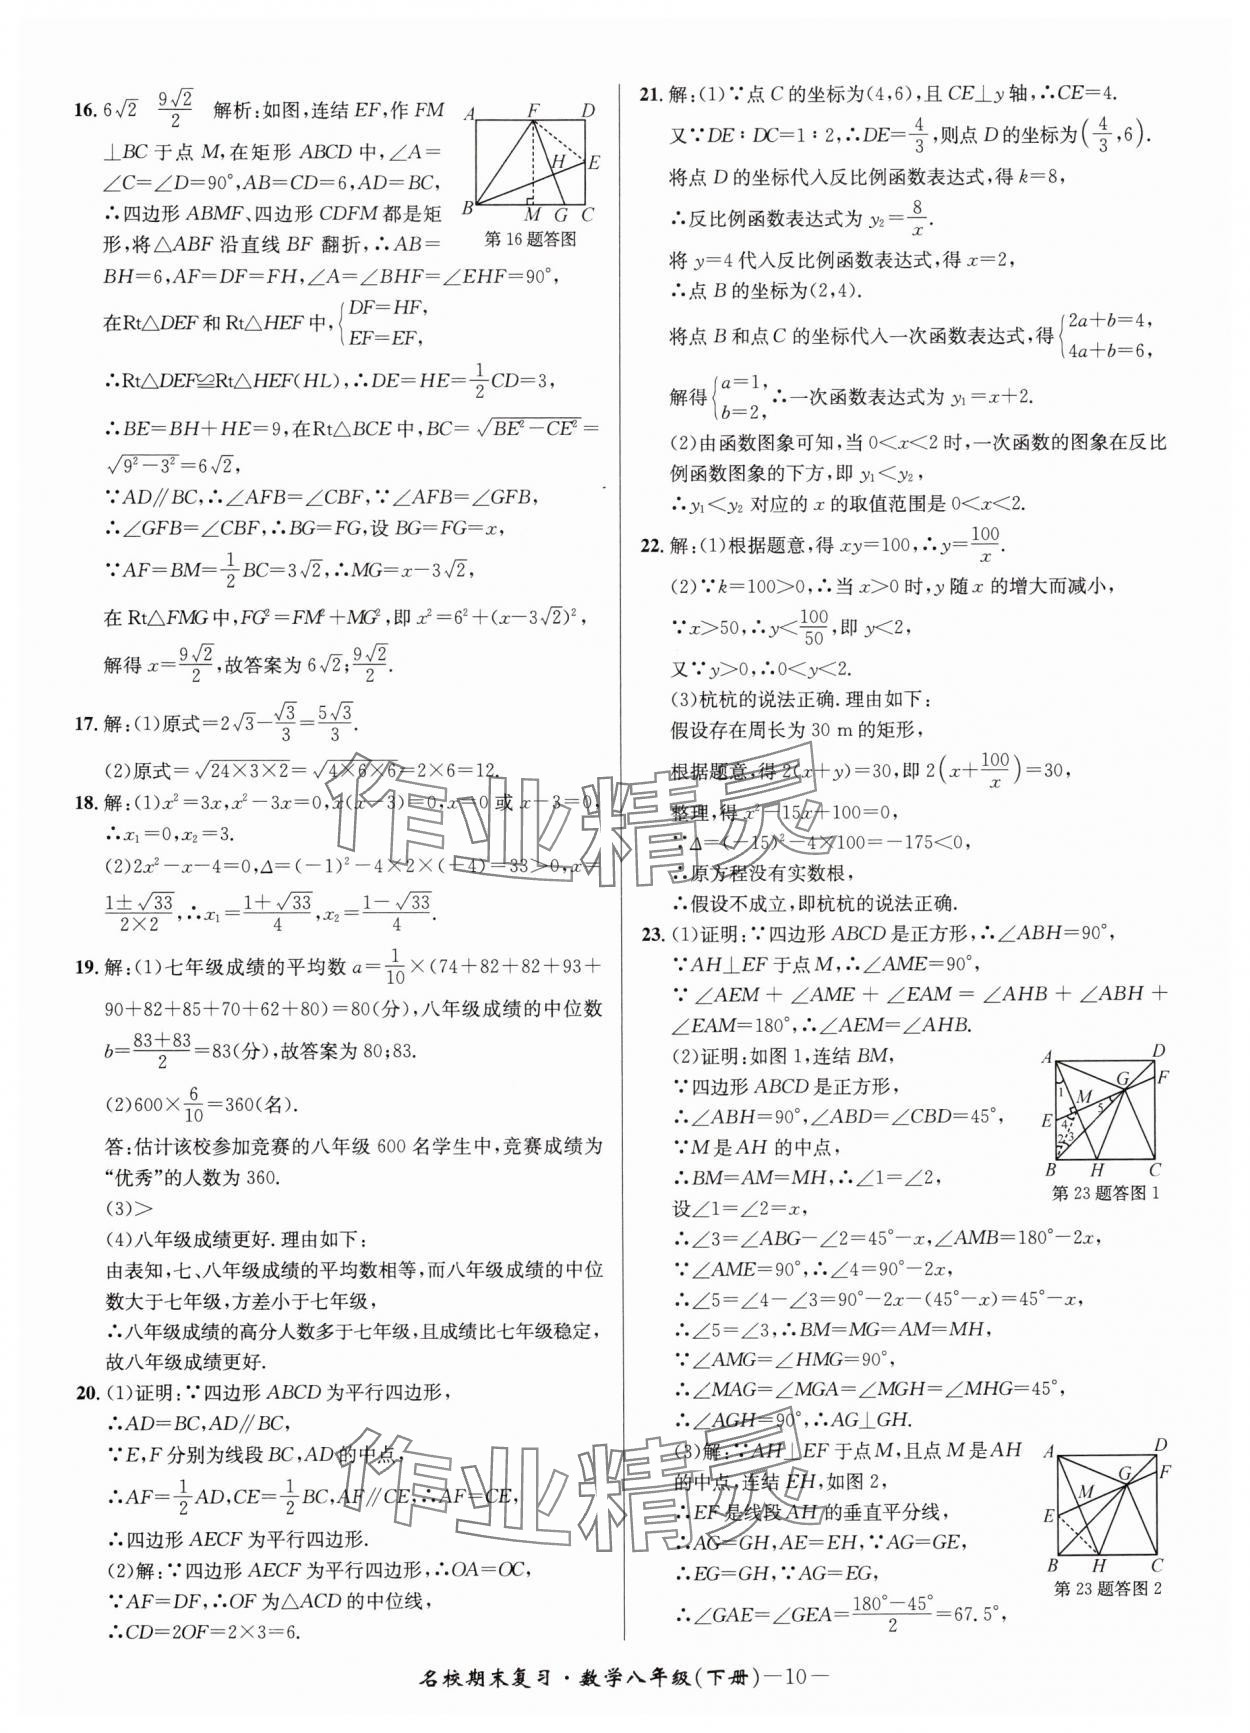 16. 6√2　9√2/2　解析:如图,连结 EF,作 FM
⊥BC 于点 M,在矩形 ABCD 中,∠A=
∠C=∠D=90°,AB=CD=6,AD=BC,
∴四边形 ABMF、四边形 CDFM 都是矩
形,将△ABF 沿直线 BF 翻折,∴AB=
BH=6,AF=DF=FH,∠A=∠BHF=∠EHF=90°,
在Rt△DEF 和 Rt△HEF 中,{DF=HF,
EF=EF,
∴Rt△DEF≌Rt△HEF(HL),∴DE=HE=1/2CD=3,
∴BE=BH+HE=9,在Rt△BCE 中,BC=√(BE²-CE²)=
√(9²-3²)=6√2,
∵AD∥BC,∴∠AFB=∠CBF,∵∠AFB=∠GFB,
∴∠GFB=∠CBF,∴BG=FG,设 BG=FG=x,
∵AF=BM=1/2BC=3√2,∴MG=x-3√2,
在 Rt△FMG 中,FG²=FM²+MG²,即 x²=6²+(x-3√2)²,
解得 x=9√2/2,故答案为 6√2;9√2/2.
A F D
H E
B M G C
第16题答图
17. 解:(1)原式=2√3-√3/3=5√3/3.
(2)原式=√(24×3×2)=√(4×6×6)=2×6=12.
18. 解:(1)x²=3x,x²-3x=0,x(x-3)=0,x=0 或 x-3=0,
∴x₁=0,x₂=3.
(2)2x²-x-4=0,Δ=(-1)²-4×2×(-4)=33>0,x=
(1±√33)/(2×2),∴x₁=(1+√33)/4,x₂=(1-√33)/4.
19. 解:(1)七年级成绩的平均数 a=1/10×(74+82+82+93+
90+82+85+70+62+80)=80(分),八年级成绩的中位数
b=(83+83)/2=83(分),故答案为 80;83.
(2)600×6/10=360(名).
答:估计该校参加竞赛的八年级 600 名学生中,竞赛成绩为
“优秀”的人数为 360.
(3)>
(4)八年级成绩更好.理由如下:
由表知,七、八年级成绩的平均数相等,而八年级成绩的中位
数大于七年级,方差小于七年级,
∴八年级成绩的高分人数多于七年级,且成绩比七年级稳定,
故八年级成绩更好.
20. (1)证明:∵四边形 ABCD 为平行四边形,
∴AD=BC,AD∥BC,
∵E,F 分别为线段 BC,AD 的中点,
∴AF=1/2AD,CE=1/2BC,AF∥CE,∴AF=CE,
∴四边形 AECF 为平行四边形.
(2)解:∵四边形 AECF 为平行四边形,∴OA=OC,
∵AF=DF,∴OF 为△ACD 的中位线,
∴CD=2OF=2×3=6.
21. 解:(1)∵点 C 的坐标为(4,6),且 CE⊥y 轴,∴CE=4.
又∵DE∶DC=1∶2,∴DE=4/3,则点 D 的坐标为(4/3,6).
将点 D 的坐标代入反比例函数表达式,得 k=8,
∴反比例函数表达式为 y₂=8/x.
将 y=4 代入反比例函数表达式,得 x=2,
∴点 B 的坐标为(2,4).
将点 B 和点 C 的坐标代入一次函数表达式,得{2a+b=4,
4a+b=6,
解得{a=1,
b=2,∴一次函数表达式为 y₁=x+2.
(2)由函数图象可知,当 0<x<2 时,一次函数的图象在反比
例函数图象的下方,即 y₁<y₂,
∴y₁<y₂ 对应的 x 的取值范围是 0<x<2.
22. 解:(1)根据题意,得 xy=100,∴y=100/x.
(2)∵k=100>0,∴当 x>0 时,y 随 x 的增大而减小,
∵x>50,∴y<100/50,即 y<2,
又∵y>0,∴0<y<2.
(3)杭杭的说法正确.理由如下:
假设存在周长为 30 m 的矩形,
根据题意,得 2(x+y)=30,即 2(x+100/x)=30,
整理,得 x²-15x+100=0,
∵Δ=(-15)²-4×100=-175<0,
∴原方程没有实数根,
∴假设不成立,即杭杭的说法正确.
23. (1)证明:∵四边形 ABCD 是正方形,∴∠ABH=90°,
∵AH⊥EF 于点 M,∴∠AME=90°,
∵∠AEM+∠AME+∠EAM=∠AHB+∠ABH+
∠EAM=180°,∴∠AEM=∠AHB.
(2)证明:如图 1,连结 BM,
∵四边形 ABCD 是正方形,
∴∠ABH=90°,∠ABD=∠CBD=45°,
∵M 是 AH 的中点,
∴BM=AM=MH,∴∠1=∠2,
设∠1=∠2=x,
∴∠3=∠ABG-∠2=45°-x,∠AMB=180°-2x,
∵∠AME=90°,∴∠4=90°-2x,
∴∠5=∠4-∠3=90°-2x-(45°-x)=45°-x,
∴∠5=∠3,∴BM=MG=AM=MH,
∵∠AMG=∠HMG=90°,
∴∠MAG=∠MGA=∠MGH=∠MHG=45°,
∴∠AGH=90°,∴AG⊥GH.
A D
G F
1 M 5
E 4
2 3
B H C
第23题答图1
(3)解:∵AH⊥EF 于点 M,且点 M 是 AH
的中点,连结 EH,如图 2,
∴EF 是线段 AH 的垂直平分线,
∴AG=GH,AE=EH,∵AG=GE,
∴EG=GH,∵AG=EG,
∴∠GAE=∠GEA=(180°-45°)/2=67.5°,
A D
G F
M
E
B H C
第23题答图2
作业精灵
作业精灵
名校期末复习·数学八年级(下册)—10—